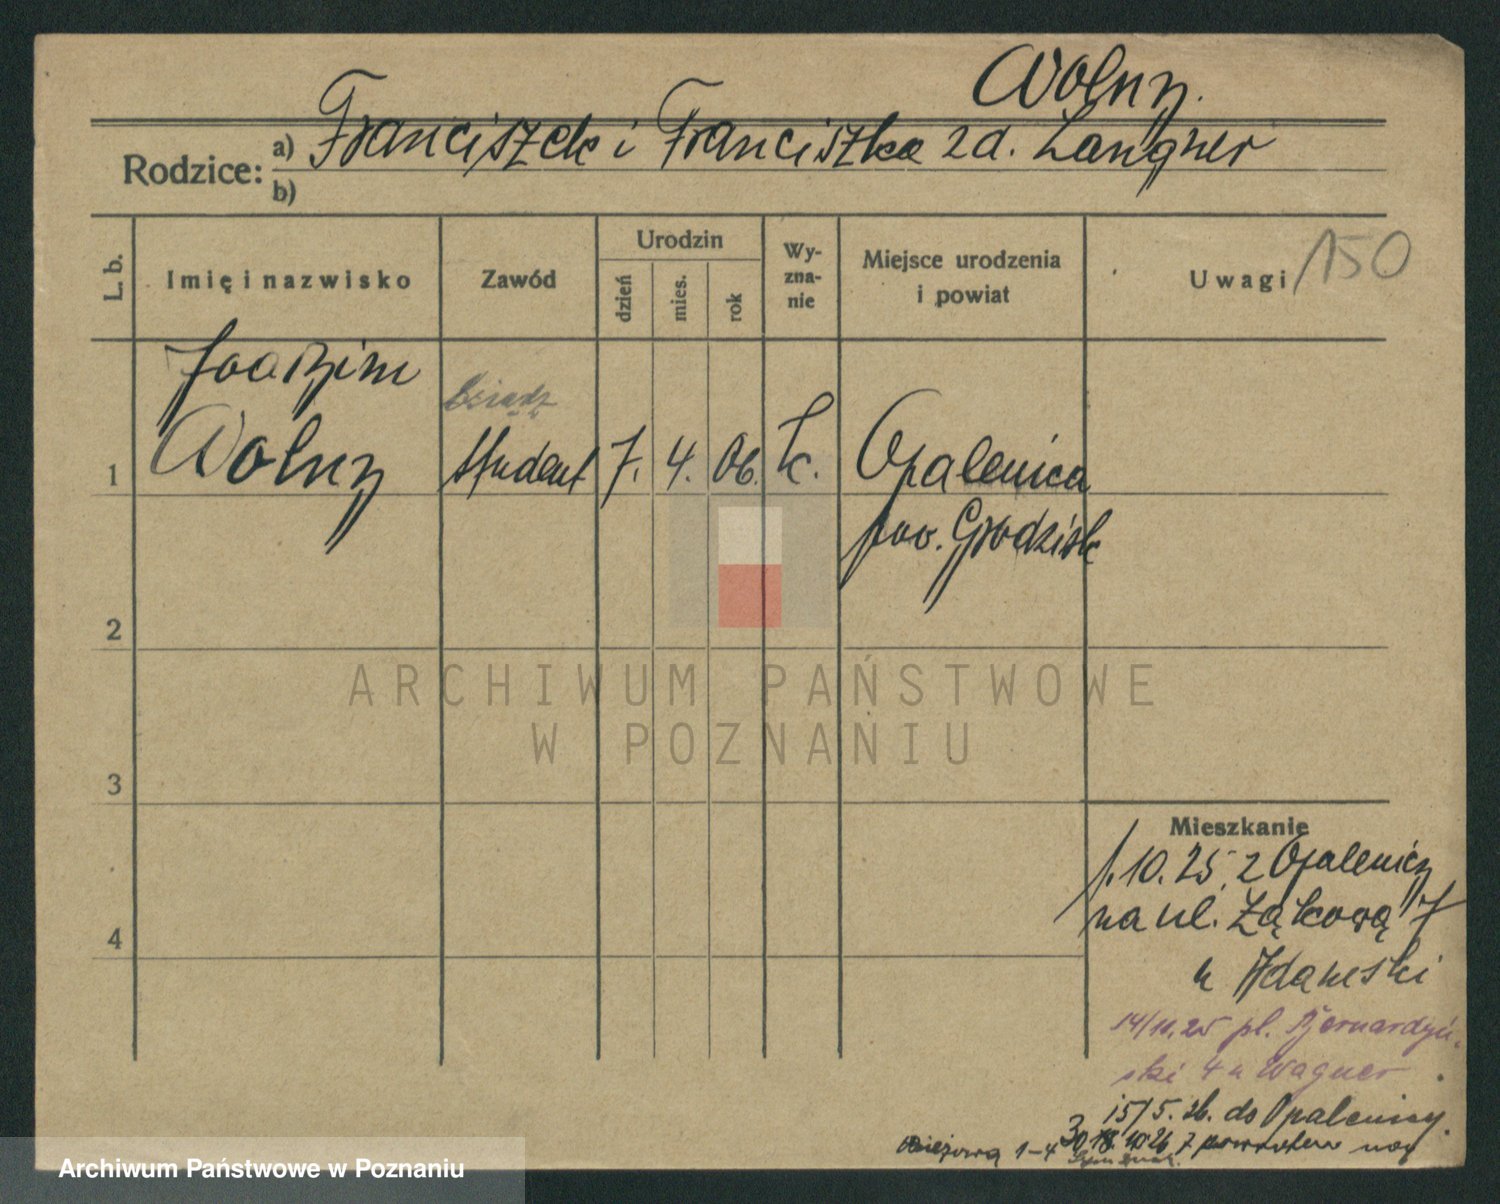 Wolny.
Rodzice: a) Franciszek i Franciszka zd. Langner
b)
L. b. Imię i nazwisko Zawód Urodzin dzień mies. rok Wy-zna-nie Miejsce urodzenia i powiat Uwagi 150
Joachim
ksiądz
1 Wolny student 7. 4. 06. k. Opalenica
pow. Grodzisk
2
ARCHIWUM PAŃSTWOWE
W POZNANIU
3
Mieszkanie
1.10.25. z Opalenicy
na ul. Łąkową 7
4
u
14/10.25 pl. Bernardyń-
ski 4 u Wagner
15/5. 26. do Opalenicy.
1-4 30. 10 26 z powrotem na
Archiwum Państwowe w Poznaniu